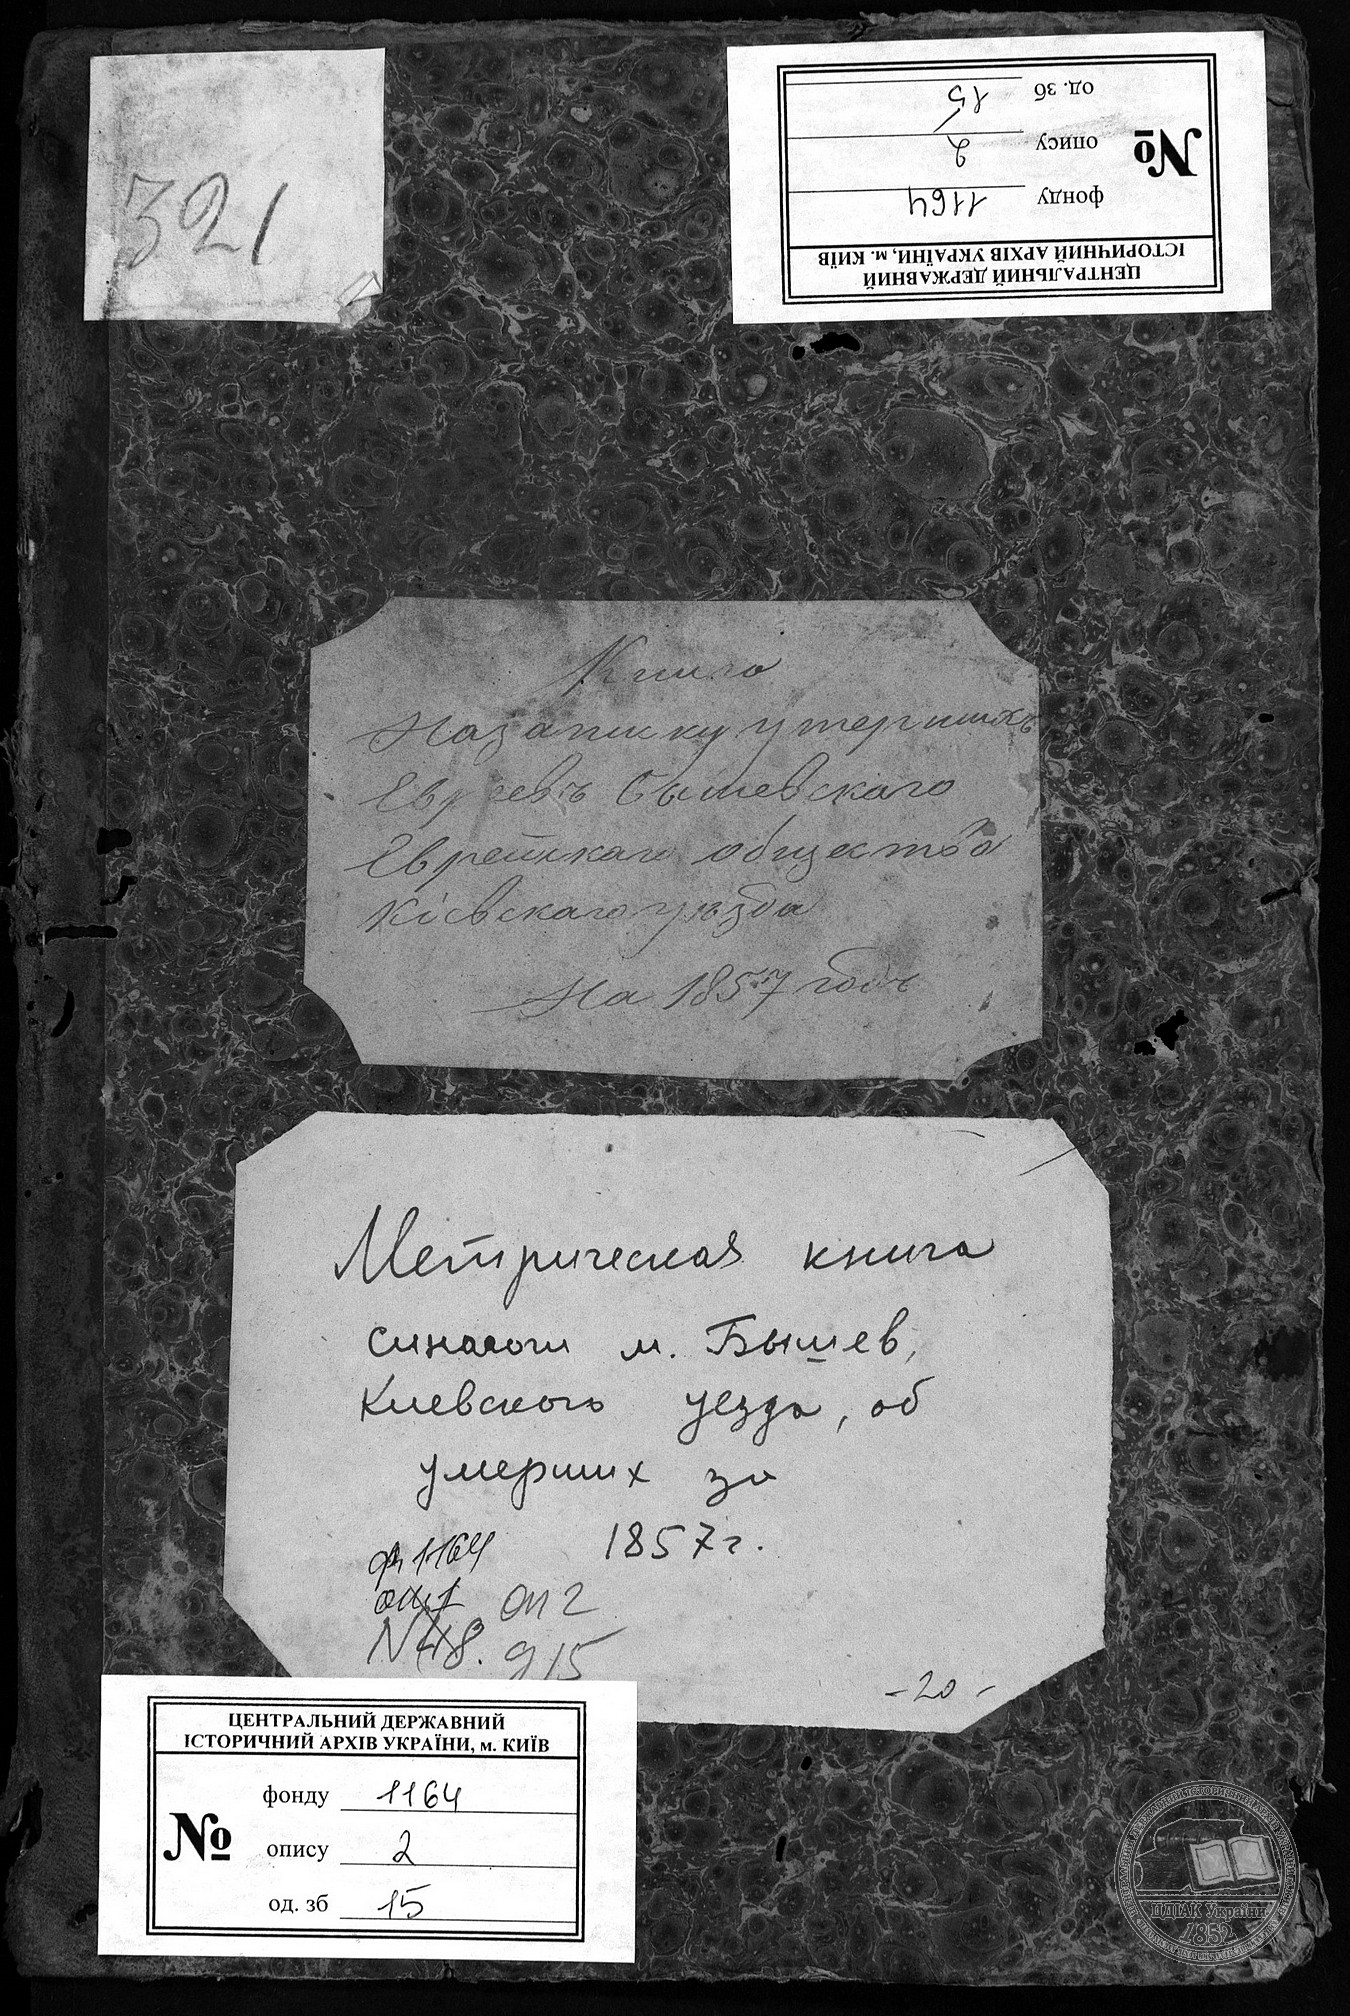 321
ЦЕНТРАЛЬНИЙ ДЕРЖАВНИЙ
ІСТОРИЧНИЙ АРХІВ УКРАЇНИ, м. КИЇВ
№
фонду 1164
опису 2
од. зб 15
Книга
На записку умершихъ
Евреевъ Бышевскаго
Еврейскаго общества
Кіевскаго уѣзда
На 1857 годъ
Метрическая книга
синагоги м. Бышев,
Киевского уезда, об
умерших за
1857г.
ф 1164
оп. 1 оп 2
N 18. д 15
- 20 -
ЦЕНТРАЛЬНИЙ ДЕРЖАВНИЙ
ІСТОРИЧНИЙ АРХІВ УКРАЇНИ, м. КИЇВ
№
фонду 1164
опису 2
од. зб 15
ЦДІАК України
1852